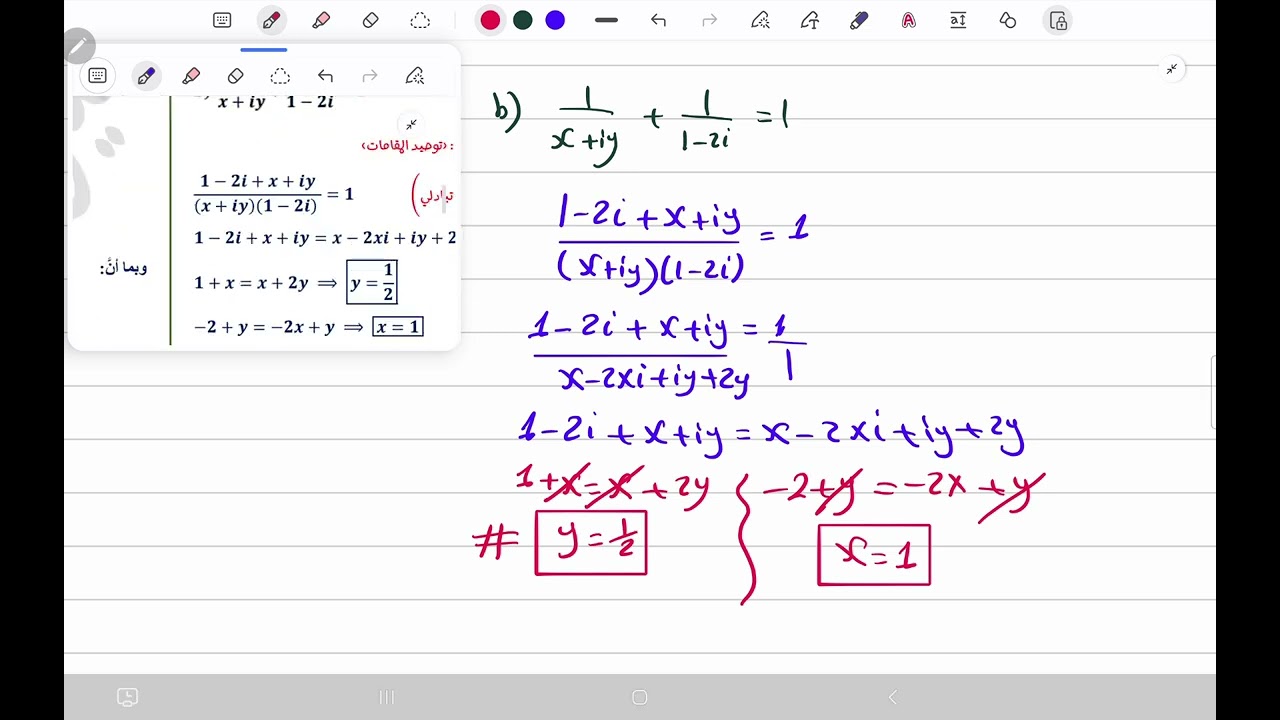 x + iy 1 − 2i
:(توحيد المقامات)
(1 − 2i + x + iy)/((x + iy)(1 − 2i)) = 1
تبادلي)
1 − 2i + x + iy = x − 2xi + iy + 2
وبما أنَّ:
1 + x = x + 2y ⟹ y = 1/2
−2 + y = −2x + y ⟹ x = 1
b) 1/(x+iy) + 1/(1−2i) = 1
(1−2i+x+iy)/((x+iy)(1−2i)) = 1
(1−2i+x+iy)/(x−2xi+iy+2y) = 1/1
1−2i+x+iy = x−2xi+iy+2y
1+x=x+2y
-2+y=-2x+y
# y=1/2
x=1